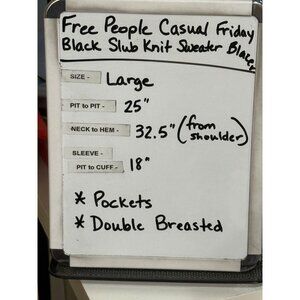 Free People Casual Friday
Black Slub Knit Sweater Blazer
SIZE - Large
PIT to PIT - 25"
NECK to HEM - 32.5" (from shoulder)
SLEEVE -
PIT to CUFF - 18"
* Pockets
* Double Breasted